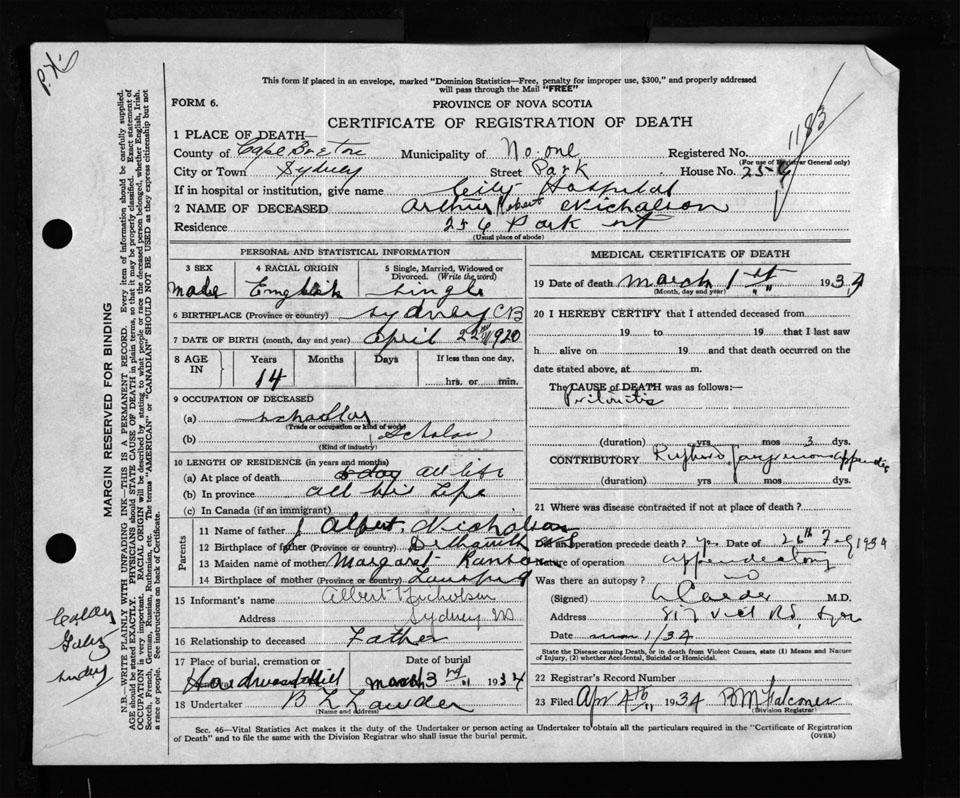 P.X.
This form if placed in an envelope, marked "Dominion Statistics—Free, penalty for improper use, $300," and properly addressed
will pass through the Mail "FREE"
FORM 6.
PROVINCE OF NOVA SCOTIA
CERTIFICATE OF REGISTRATION OF DEATH
1183
1 PLACE OF DEATH—
County of Cape Breton Municipality of No. one Registered No.
(For use of Registrar General only)
City or Town Sydney Street Park House No. 256
If in hospital or institution, give name City Hospital
2 NAME OF DECEASED Arthur Nicholson
Residence 256 Park St
(Usual place of abode)
PERSONAL AND STATISTICAL INFORMATION
3 SEX 4 RACIAL ORIGIN 5 Single, Married, Widowed or Divorced. (Write the word)
Male English Single
6 BIRTHPLACE (Province or country) Sydney CB
7 DATE OF BIRTH (month, day and year) April 22nd 1920
8 AGE IN Years Months Days If less than one day,
14 hrs. or min.
9 OCCUPATION OF DECEASED
(a) Schoollar
(Trade or occupation or kind of work)
(b) (Scholar)
(Kind of industry)
10 LENGTH OF RESIDENCE (in years and months)
(a) At place of death all life
(b) In province all his Life
(c) In Canada (if an immigrant)
Parents
11 Name of father Albert Nicholson
12 Birthplace of father (Province or country)
13 Maiden name of mother Margaret
14 Birthplace of mother (Province or country)
15 Informant's name Albert Nicholson
Address Sydney NS
16 Relationship to deceased Father
17 Place of burial, cremation or Date of burial
Hardwood Hill March 3rd 1934
18 Undertaker
(Name and address)
MEDICAL CERTIFICATE OF DEATH
19 Date of death March 1st 1934
(Month, day and year)
20 I HEREBY CERTIFY that I attended deceased from
19 to 19 that I last saw
h alive on 19 and that death occurred on the
date stated above, at m.
The CAUSE of DEATH was as follows:—
(duration) yrs mos 3 dys.
CONTRIBUTORY
(duration) yrs mos dys.
21 Where was disease contracted if not at place of death?
Did an operation precede death? yes Date of 26th Feb 1934
Nature of operation
Was there an autopsy? no
(Signed) M.D.
Address
Date mar 1/34
State the Disease causing Death, or in death from Violent Causes, state (1) Means and
Nature of Injury, (2) whether Accidental, Suicidal or Homicidal.
22 Registrar's Record Number
23 Filed Apr 4th 1934 B M Falconer
(Division Registrar)
Sec. 46—Vital Statistics Act makes it the duty of the Undertaker or person acting as Undertaker to obtain all the particulars required in the "Certificate of Registration
of Death" and to file the same with the Division Registrar who shall issue the burial permit.
(OVER)
MARGIN RESERVED FOR BINDING
N.B.—WRITE PLAINLY WITH UNFADING INK—THIS IS A PERMANENT RECORD. Every item of information should be carefully supplied.
AGE should be stated EXACTLY. PHYSICIANS should STATE CAUSE OF DEATH in plain terms, so that it may be properly classified. Exact statement of
OCCUPATION is very important. RACIAL ORIGIN will be described by stating to what people or race the deceased person belonged, whether English, Irish,
Scotch, French, German, Russian, Ruthenian, etc. The terms "AMERICAN" or "CANADIAN" SHOULD NOT BE USED as they express citizenship but not
a race or people. See instructions on back of Certificate.